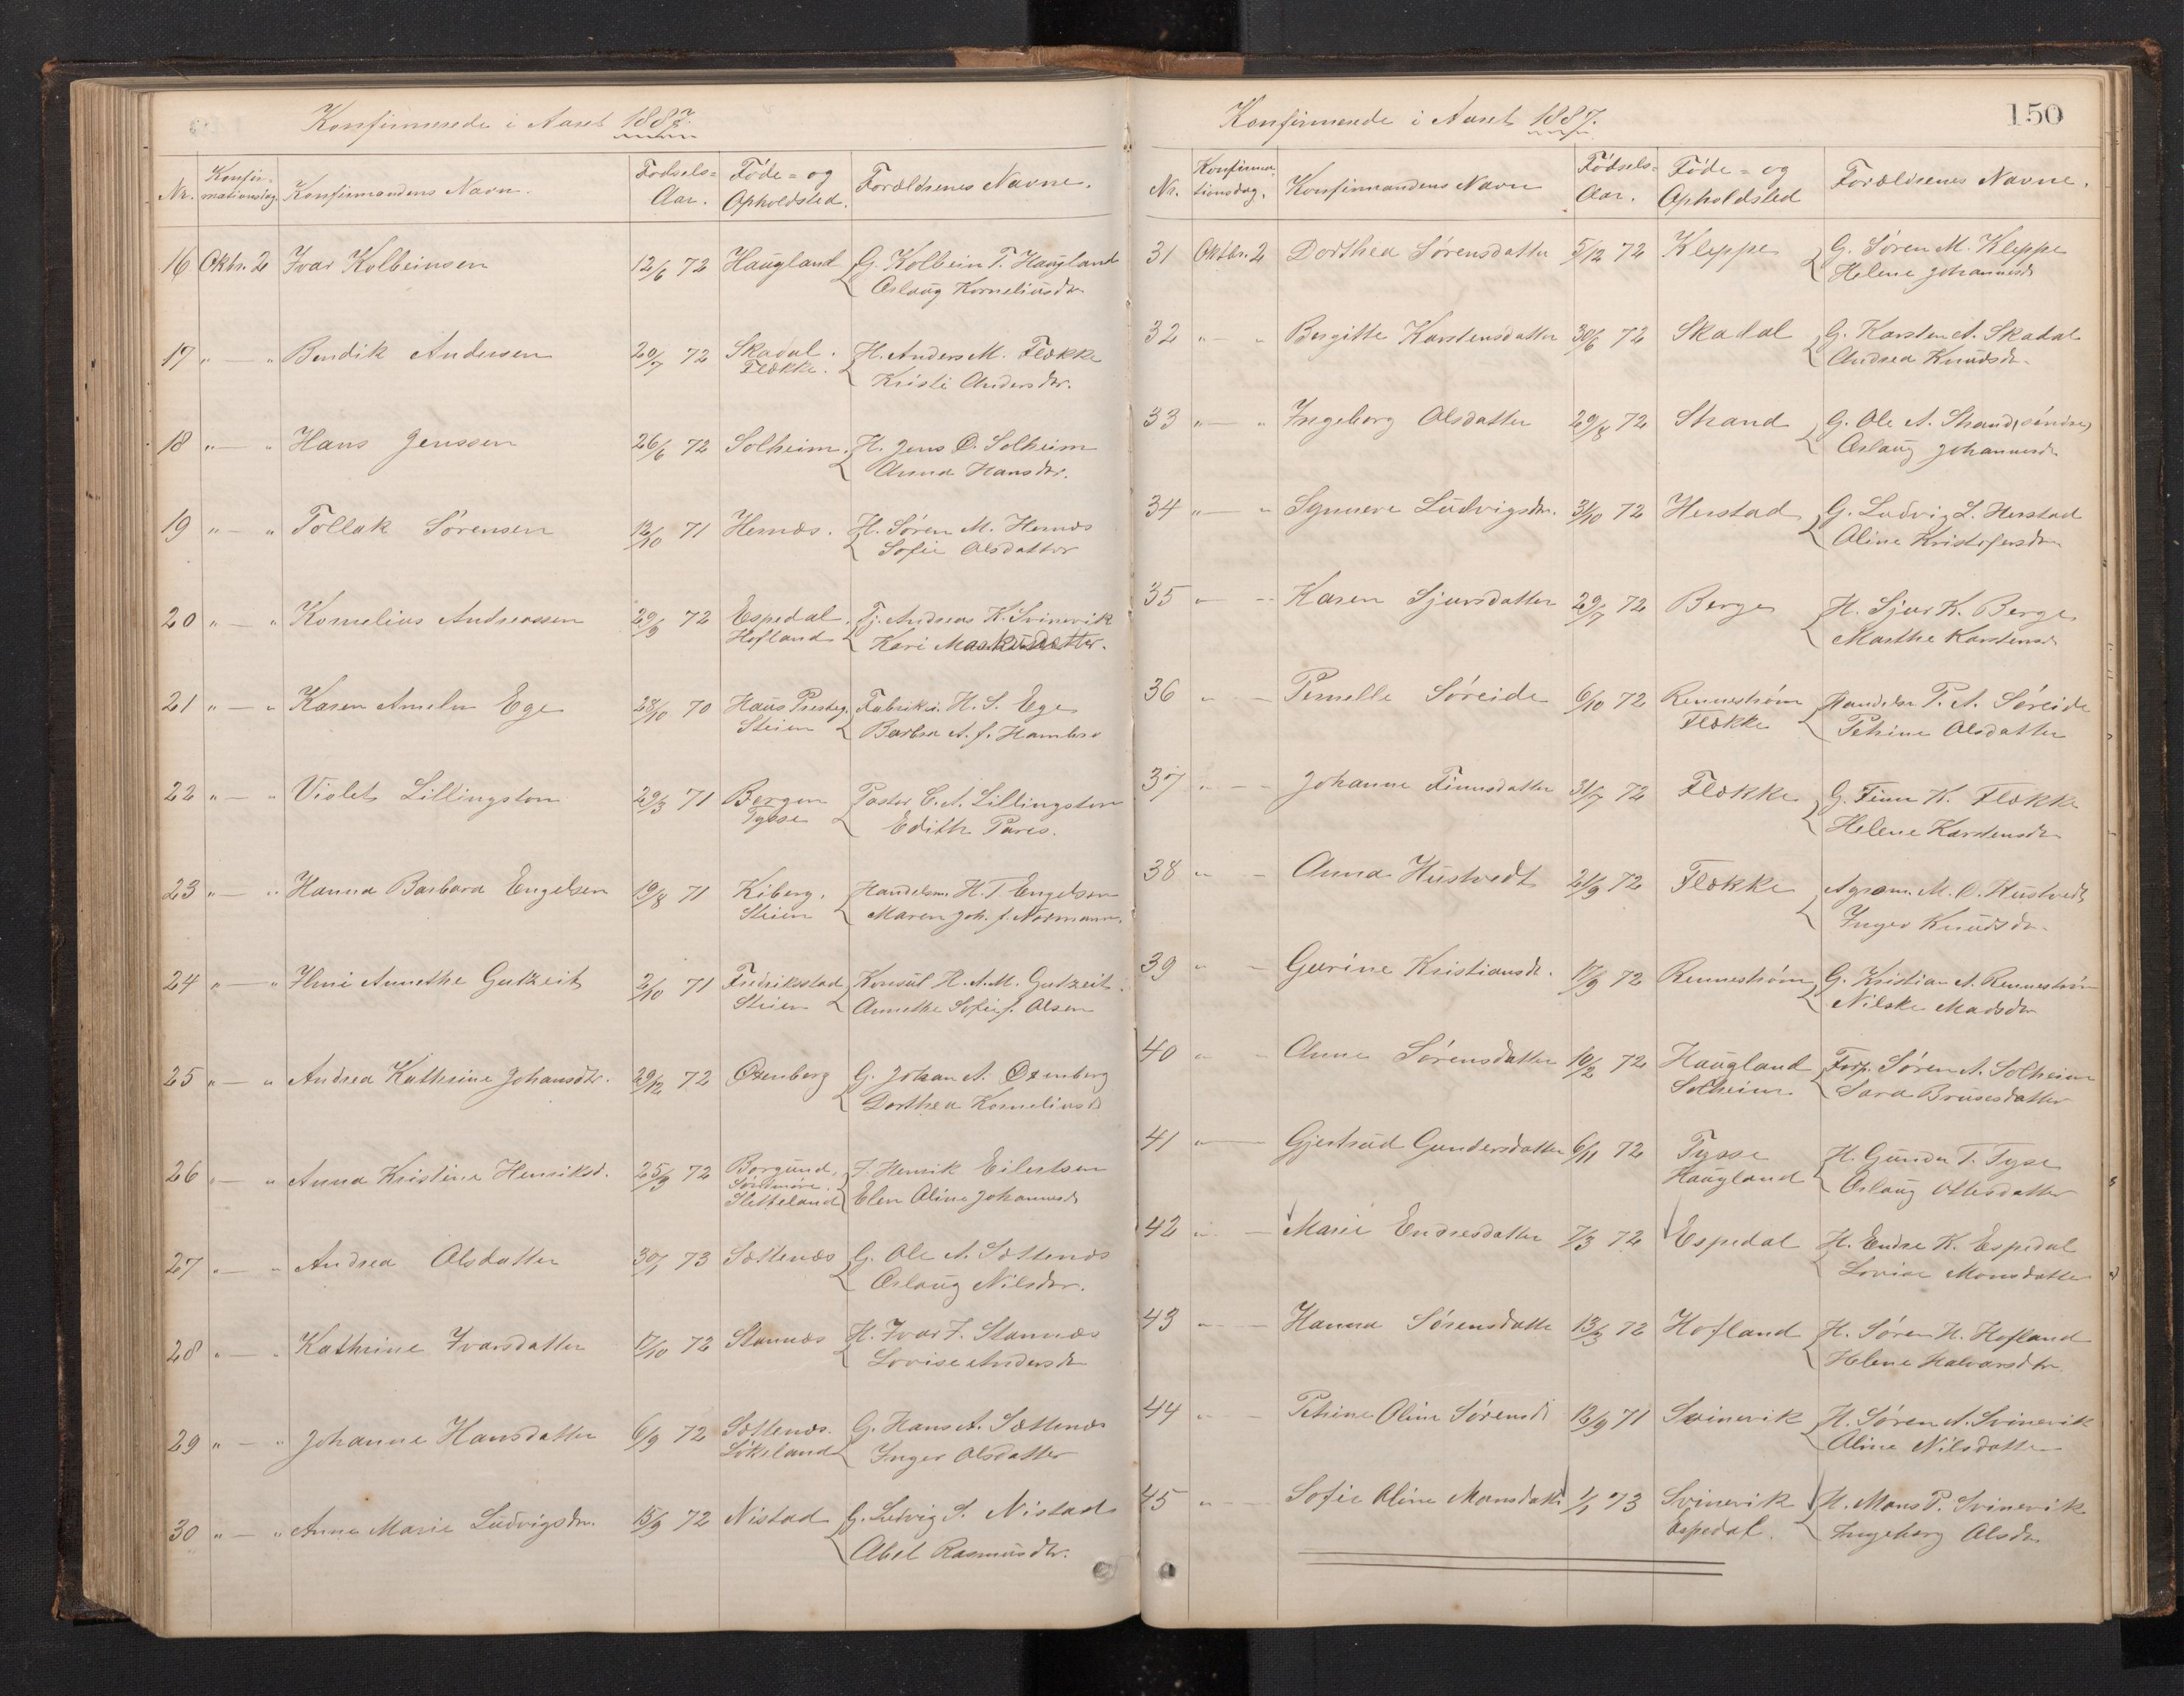 Konfirmerede i Aaret 1887.
Nr. Konfir-mationsdag Konfirmandens Navn. Fødsels-Aar. Føde- og Opholdsted. Forældrenes Navne.
16 Oktbr. 2 Ivar Kolbeinsen 12/6 72 Haugland G. Kolbein T. Haugland
Oslaug Korneliusdr.
17 " — " Bendik Andersen 20/7 72 Skadal. H. Anders M. Flokke
Flokke. Kristi Andersdr.
18 " — " Hans Jenssen 26/6 72 Solheim. H. Jens O. Solheim
Anna Hansdr.
19 " — " Tollak Sørensen 12/10 71 Hernæs. H. Søren M. Hernæs
Sofie Olsdatter
20 " — " Kornelius Andreassen 29/9 72 Espedal. Tj. Andreas K. Svinevik
Hofland Kari Markusdatter.
21 " — " Karen Amelia Ege 28/10 70 Haus Presteg. Fabrikei. H. S. Ege
Steien Barbra A. f. Hambro
22 " — " Violet Lillingston 29/3 71 Bergen Pastor C. A. Lillingston
Tysse Edith Pares.
23 " — " Hanna Barbara Engelsen 19/8 71 Kiberg. Handelsm. H. T. Engelsen
Steien Maren Joh. f. Normann.
24 " — " Annethe Gutzeit 2/10 71 Fredriksstad Konsul H. A. M. Gutzeit.
Steien Annethe Sofie f. Olsen
25 " — " Andrea Kathrine Johansdtr. 29/12 72 Oxenberg G. Johan A. Oxenberg
Dorthea Korneliusd.
26 " — " Anna Kristine Henriksd. 25/9 72 Borgund, J. Henrik Eilertsen
Søndmøre.
Sletteland Elen Oline Johannesd.
27 " — " Andrea Olsdatter 30/1 73 Sættenæs G. Ole A. Sættenæs
Oslaug Nilsdr.
28 " — " Kathrine Ivarsdatter 17/10 72 Stannæs H. Ivar J. Stannæs
Lovise Andersdr
29 " — " Johanne Hansdatter 6/9 72 Sættenæs. G. Hans A. Sættenæs
Løkeland Inger Olsdatter
30 " — " Anne Marie Ludvigsdr. 15/9 72 Nistad G. Ludvig S. Nistad
Abel Rasmusdtr.
150
Konfirmerede i Aaret 1887.
Nr. Konfirma-tionsdag. Konfirmandens Navn Fødsels-Aar. Føde- og Opholdsted Forældrenes Navne.
31 Oktbr. 2 Dorthea Sørensdatter 5/12 72 Kleppe G. Søren M. Kleppe
Helene Johannesd
32 " — " Bergitte Karstensdatter 30/6 72 Skadal G. Karsten A. Skadal
Andrea Knudsdr.
33 " — " Ingeborg Olsdatter 29/8 72 Strand G. Ole A. Strand, søndre
Oslaug Johannesdr
34 " — " Synneve Ludvigsdr. 31/10 72 Herstad G. Ludvig L. Herstad
Oline Kristofersdr
35 " — " Karen Sjursdatter 29/7 72 Berge H. Sjur K. Berge
Marthe Karstensd.
36 " — Pernelle Søreide 6/10 72 Rennestrøm Handelsm P. A. Søreide
Flokke Petrine Olsdatter
37 " — Johanne Finnsdatter 31/7 72 Flokke G. Finn K. Flokke
Helene Karstensdr
38 " — Anna Hustvedt 21/9 72 Flokke Agrom. M. O. Hustvedt
Inger Knudsdr.
39 " — Gurine Kristiansdr. 17/9 72 Rennestrøm G. Kristian A. Rennestrøm
Nilske Madsdr
40 " — Anne Sørensdatter 10/2 72 Haugland Forp. Søren A. Solheim
Solheim Sara Brusesdatter
41 " — Gjertrud Gundersdatter 6/11 72 Tysse H. Gunder T. Tysse
Haugland Oslaug Ottesdatter
42 " — Marie Endresdatter 7/3 72 Espedal H. Endre K. Espedal
Lovise Monsdatter
43 " — Hanna Sørensdatte 13/9 72 Hofland H. Søren H. Hofland
Helene Halvorsdtr
44 " — Petrine Oline Sørensd 12/9 71 Svinevik H. Søren A. Svinevik
Oline Nilsdatter
45 " — Sofie Oline Monsdatt 1/1 73 Svinevik H. Mons P. Svinevik
Espedal. Ingeborg Olsdr.